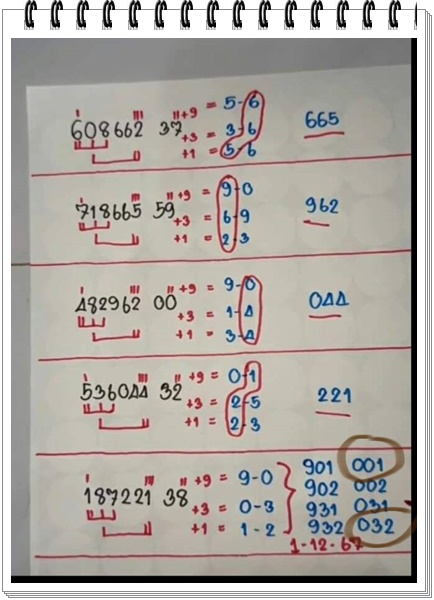 608662 37 +9 = 5-6
+3 = 3-6 665
+1 = 5-6
718665 59 +9 = 9-0
+3 = 6-9 962
+1 = 2-3
482962 00 +9 = 9-0
+3 = 1-4 044
+1 = 3-4
536044 32 +9 = 0-1
+3 = 2-5 221
+1 = 2-3
187221 38 +9 = 9-0
+3 = 0-3
+1 = 1-2
901 001
902 002
931 031
932 032
1-12-67